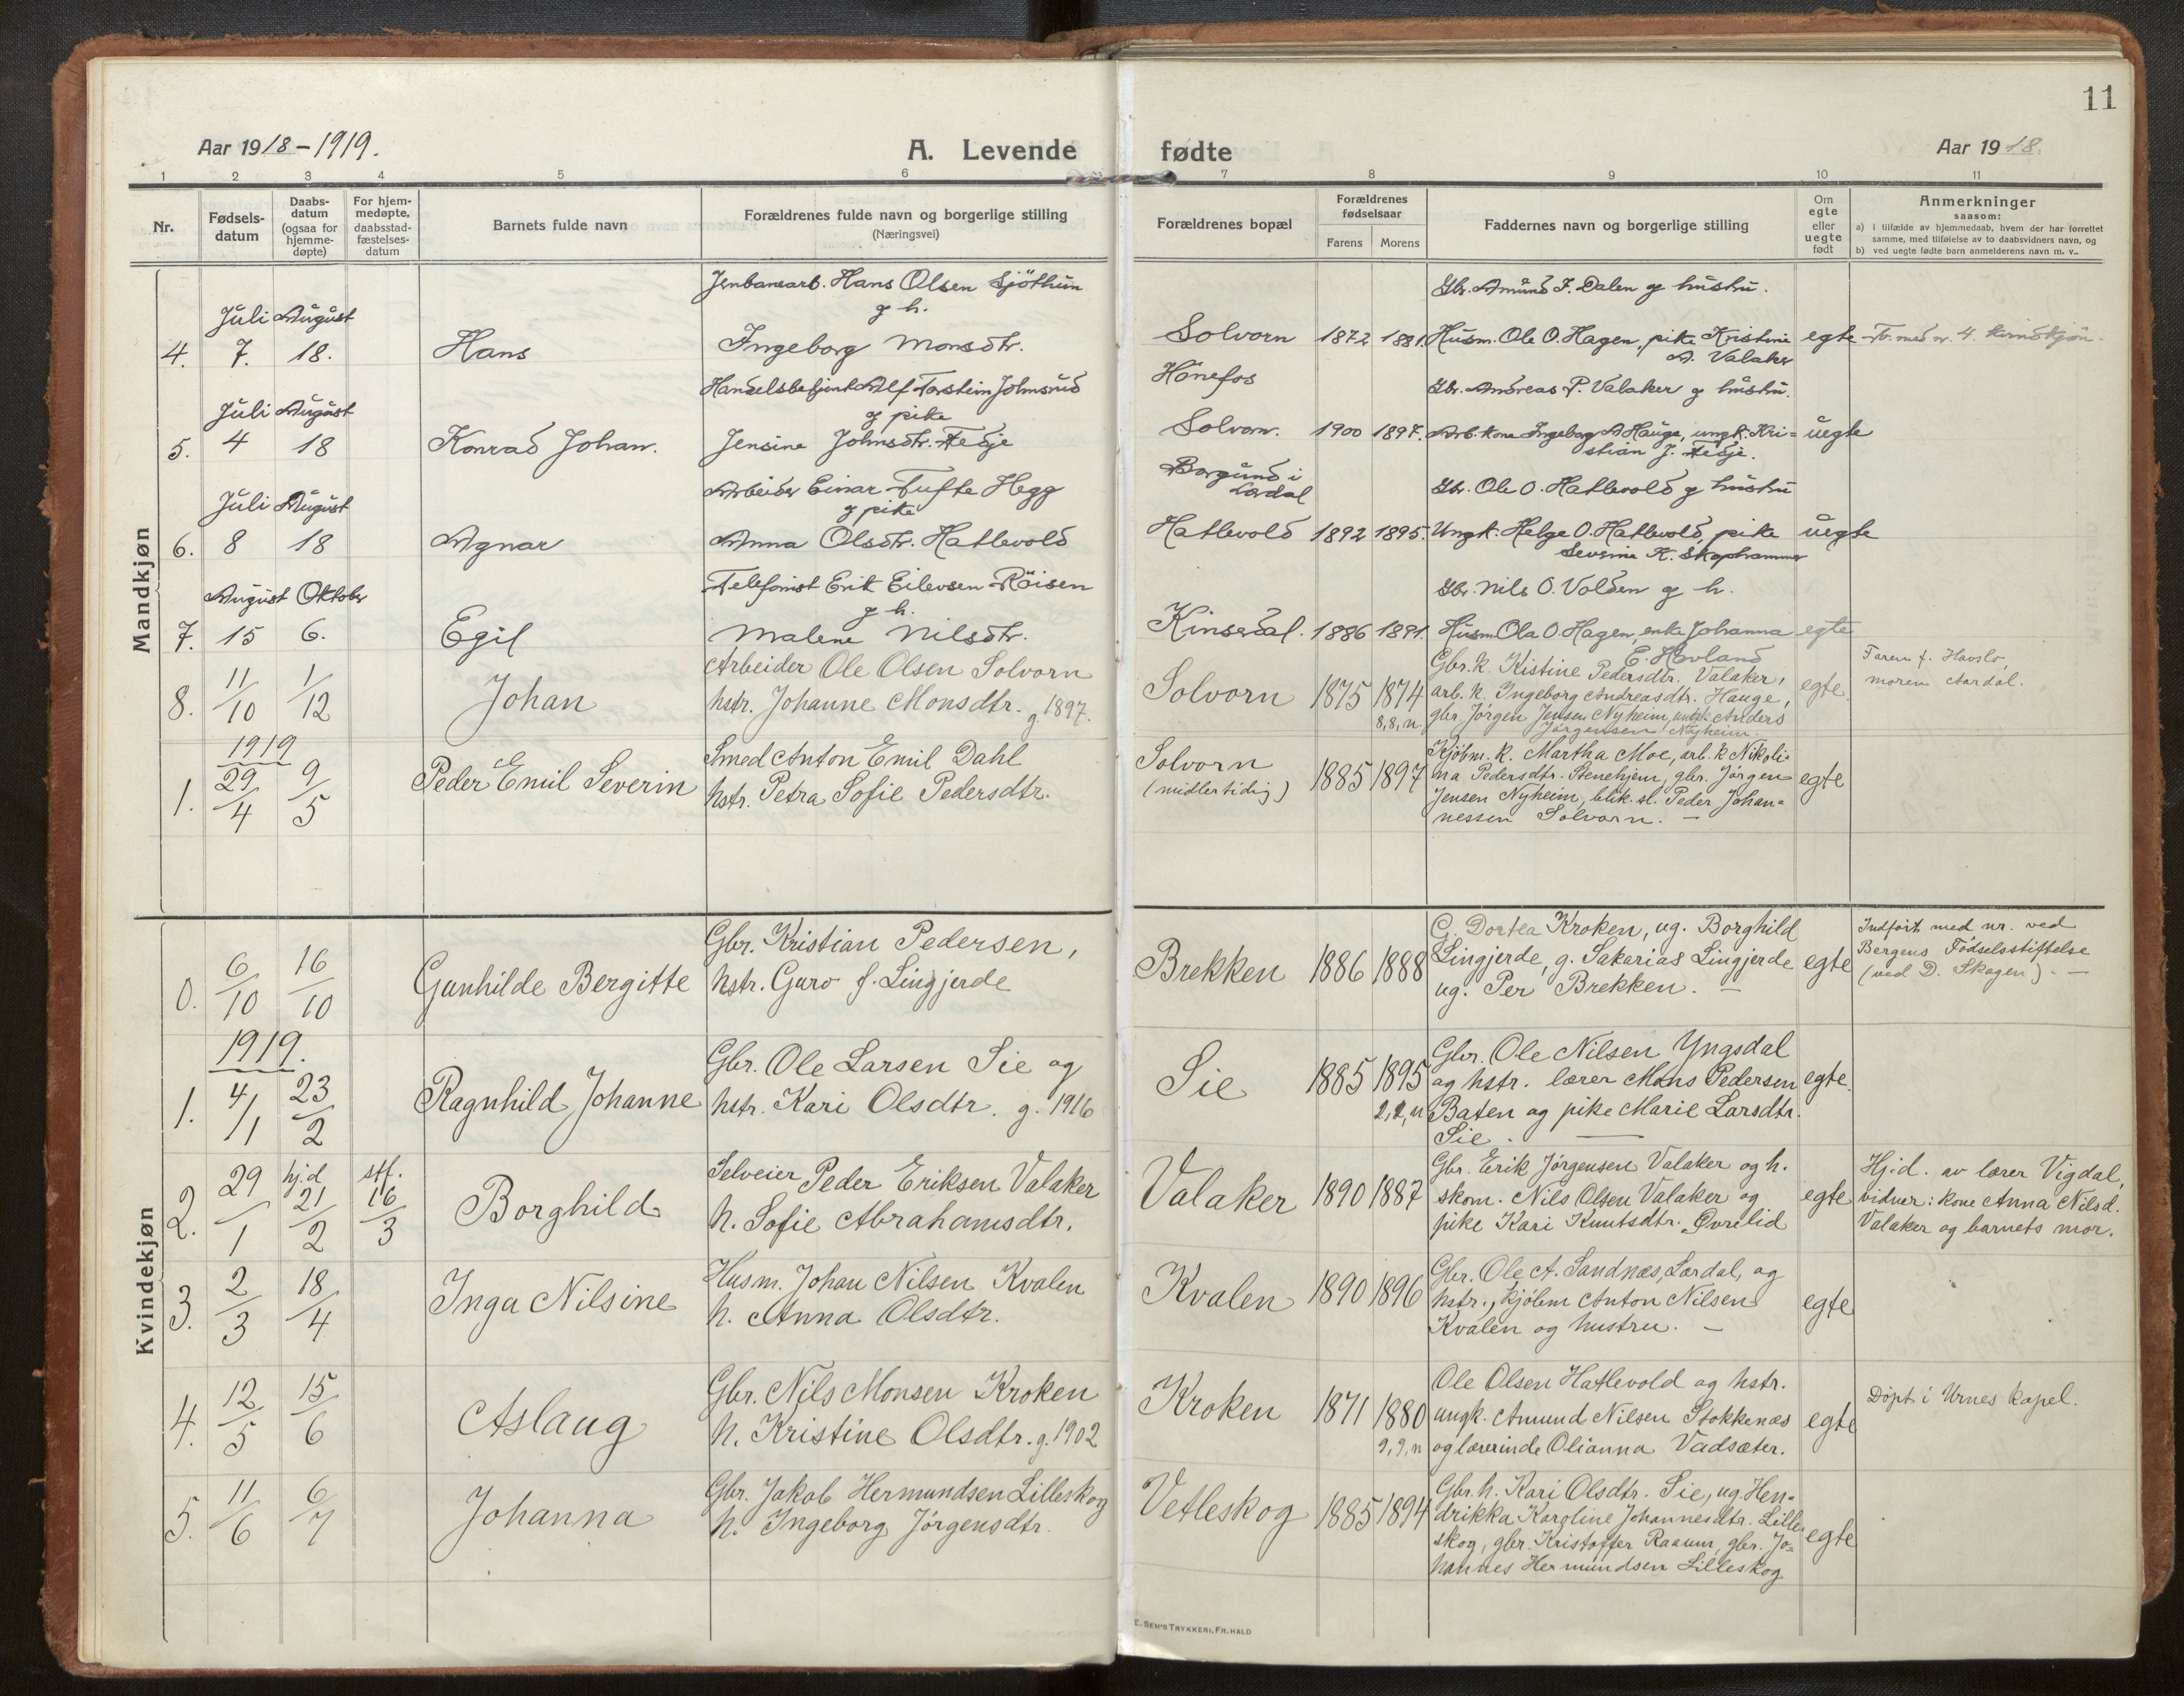 11
Aar 1918-1919.
A. Levende
fødte
Aar 1918.
1 2 3 4 5 6 7 8 9 10 11
Nr.
Fødsels-
datum
Daabs-
datum
(ogsaa for
hjemme-
døpte)
For hjem-
medøpte,
daabsstad-
fæstelses-
datum
Barnets fulde navn
Forældrenes fulde navn og borgerlige stilling
(Næringsvei)
Forældrenes bopæl
Forældrenes
fødselsaar
Farens Morens
Faddernes navn og borgerlige stilling
Om
egte
eller
uegte
født
Anmerkninger
saasom:
a) i tilfælde av hjemmedaab, hvem der har forrettet
samme, med tilføielse av to daabsvidners navn, og
b) ved uegte fødte barn anmelderens navn m. v..
Mandkjøn
Juli August
4. 7. 18.
Hans
Jenbanearb. Hans Olsen Sjöthun
g h.
Ingeborg Monsdtr.
Solvorn
1872 1881.
Gbr. Amund J. Dalen g hustru.
Husm. Ole O. Hagen, pike Kristine
A. Valaker
egte
Juli August
5. 4 18
Konrad Johan.
Handelsbetjent Alf Torstein Johnsrud
g pike
Jensine Johnsdtr. Fedje
Hönefos
Solvorn.
1900 1897.
Gbr. Andreas P. Valaker g hustru.
Arb. kone Ingeborg A Hauge, ungk. Kri=
stian J. Fedje.
uegte
Juli August
6. 8 18
Agnar
Arbeider Einar Tufte Hegg
g pike
Anna Olsdtr. Hatlevold
Borgund i
Lærdal
Hatlevold
1892 1895.
Gbr. Ole O. Hatlevold g hustru
Ungk. Helge O. Hatlevold, pike
Severine K. Skaphammer
uegte
August Oktober
7. 15 6.
Egil
Telefonist Erik Eilevsen Röisen
g h.
Malene Nilsdtr.
Kinsedal.
1886 1891.
Gbr. Nils O. Volden g h.
Husm Ola O. Hagen, enke Johanna
E. Havland
egte
8. 11/10 1/12
Johan
Arbeider Ole Olsen Solvorn
hstr. Johanne Monsdtr. g. 1897.
Solvorn
1875 1874
8,8,n.
Gbr. k. Kistine Pedersdtr. Valaker,
arb. k. Ingeborg Andreasdtr. Hauge,
gbr. Jørgen Jensen Nyheim, ungk. Anders
Jørgensen Nyheim.
egte
Faren f. Havslo,
moren Aardal.
1919
1. 29/4 9/5
Peder Emil Severin
Smed Anton Emil Dahl
hstr. Petra Sofie Pedersdtr.
Solvorn
(midlertidig)
1885 1897
Kjøbm. k. Martha Moe, arb. k Nikoli=
na Pedersdtr. Stenehjem, gbr. Jørgen
Jensen Nyheim, blik. sl. Peder Johan=
nessen Solvorn. –
egte
Kvindekjøn
0. 6/10 16/10
Gunhilde Bergitte
Gbr. Kristian Pedersen,
hstr. Guro f. Lingjerde
Brekken
1886 1888
G. Dortea Kroken, ug. Borghild
Lingjerde, g. Sakarias Lingjerde
ug. Per Brekken. –
egte
Indført med nr. ved
Bergens Fødselsstiftelse
(ved D. Skagen). –
1919.
1. 4/1 23/2
Ragnhild Johanne
Gbr. Ole Larsen Sie og
hstr. Kari Olsdtr. g. 1916
Sie
1885 1895
2,2,n
Gbr. Ole Nilsen Yngsdal
og hstr. lærer Mons Pedersen
Baten og pike Marie Larsdtr.
Sie.
egte.
2. 29/1 hj.d 21/2 stf. 16/3
Borghild
Selveier Peder Eriksen Valaker
h. Sofie Abrahamsdtr.
Valaker
1890 1887
Gbr. Erik Jørgensen Valaker og h.
skom. Nils Olsen Valaker og
pike Kari Knutsdtr. Øvrelid
egte
Hj.d. av lærer Vigdal,
vidner: kone Anna Nilsd.
Valaker og barnets mor.
3. 2/3 18/4
Inga Nilsine
Husm. Johan Nilsen Kvalen
h. Anna Olsdtr.
Kvalen
1890 1896
Gbr. Ole A. Sandnæs, Lærdal, og
hstr., kjøbm Anton Nilsen
Kvalen og hustru. –
egte
4. 12/5 15/6
Aslaug
Gbr. Nils Monsen Kroken
h. Kristine Olsdtr. g. 1902
Kroken
1871 1880
9,9,n
Ole Olsen Hatlevold og hstr.
ungk. Amund Nilsen Stokkenæs
og lærerinde Olianna Vadsæter.
egte
Døpt i Urnes kapel.
5. 11/6 6/7
Johanna
Gbr. Jakob Hermundsen Lilleskog
h. Ingeborg Jørgensdtr.
Vetleskog
1885 1894
Gbr. h. Kari Olsdtr. Sie, ug. Hen=
drikka Karoline Johannesdtr. Lille
skog, gbr. Kristoffer Raaum, gbr. Jo=
hannes Hermundsen Lilleskog
egte
E. SEM'S TRYKKERI, FR. HALD